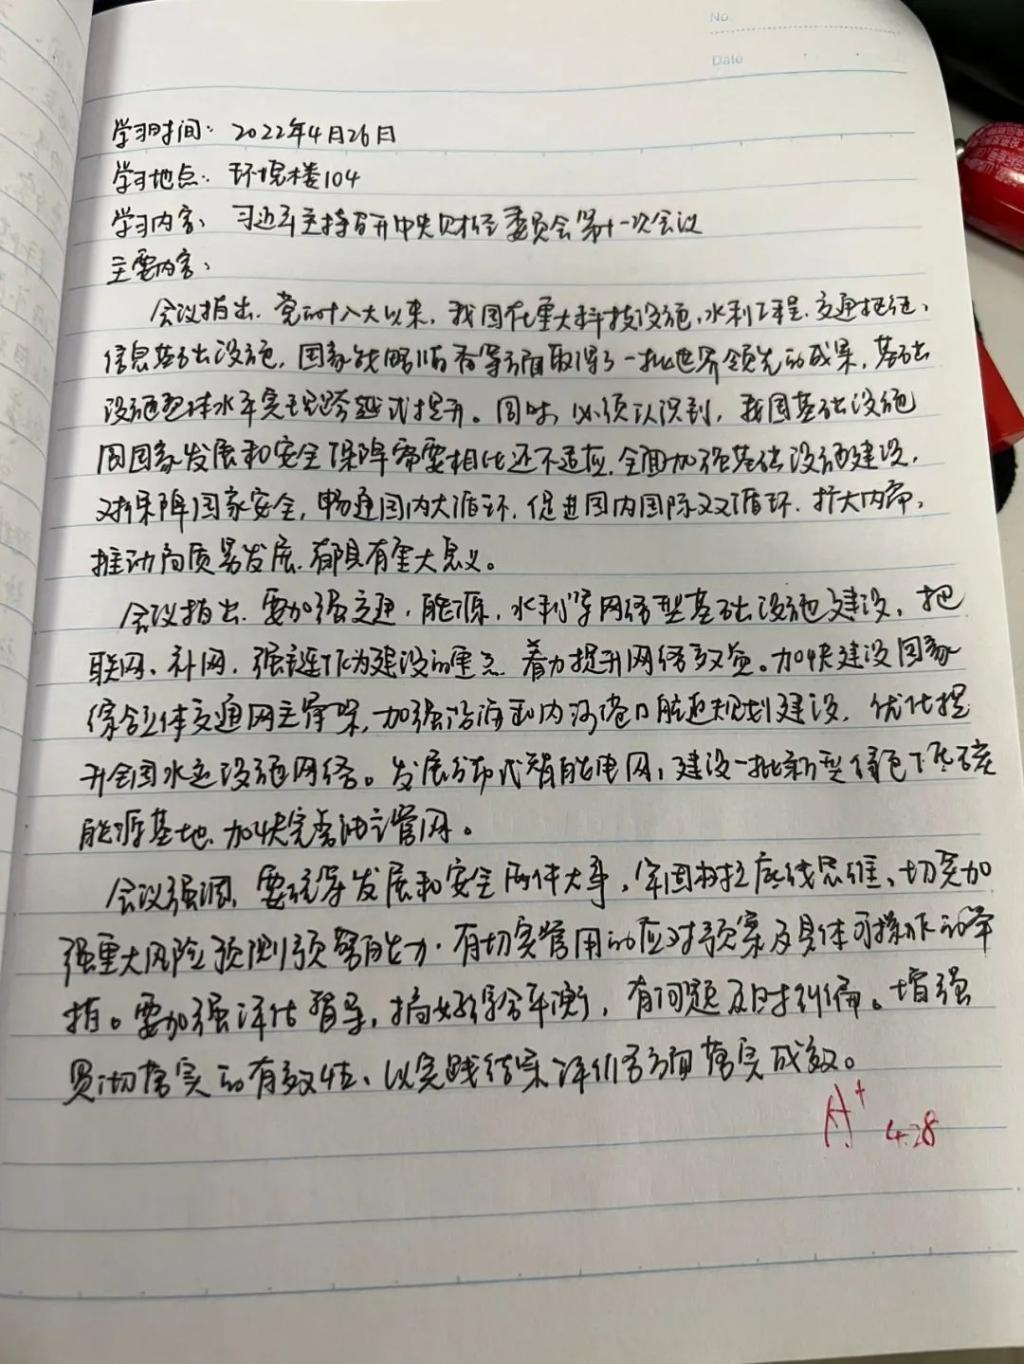 No.
Date
学习时间：2022年4月26日
学习地点：环境楼104
学习内容：习近平主持召开中央财经委员会第十一次会议
主要内容：
会议指出，党的十八大以来，我国在重大科技设施，水利工程，交通枢纽，
信息基础设施，国家战略储备等方面取得了一批世界领先的成果，基础
设施整体水平实现跨越式提升。同时，必须认识到，我国基础设施
同国家发展和安全保障需要相比还不适应，全面加强基础设施建设，
对保障国家安全，畅通国内大循环，促进国内国际双循环，扩大内需，
推动高质量发展，都具有重大意义。
会议指出，要加强交通，能源，水利等网络型基础设施建设，把
联网、补网，强链作为建设的重点，着力提升网络效益。加快建设国家
综合立体交通网主骨架，加强沿海和内河港口航道规划建设，优化提
升全国水运设施网络。发展分布式智能电网，建设一批新型绿色低碳
能源基地，加快完善油气管网。
会议强调，要统筹发展和安全两件大事，牢固树立底线思维，切实加
强重大风险预测预警能力，有切实管用的应对预案及具体可操作的举
措。要加强评估督导，搞好综合平衡，有问题及时纠偏。增强
贯彻落实的有效性，以实践结果评价各方面落实成效。
A+ 4.28